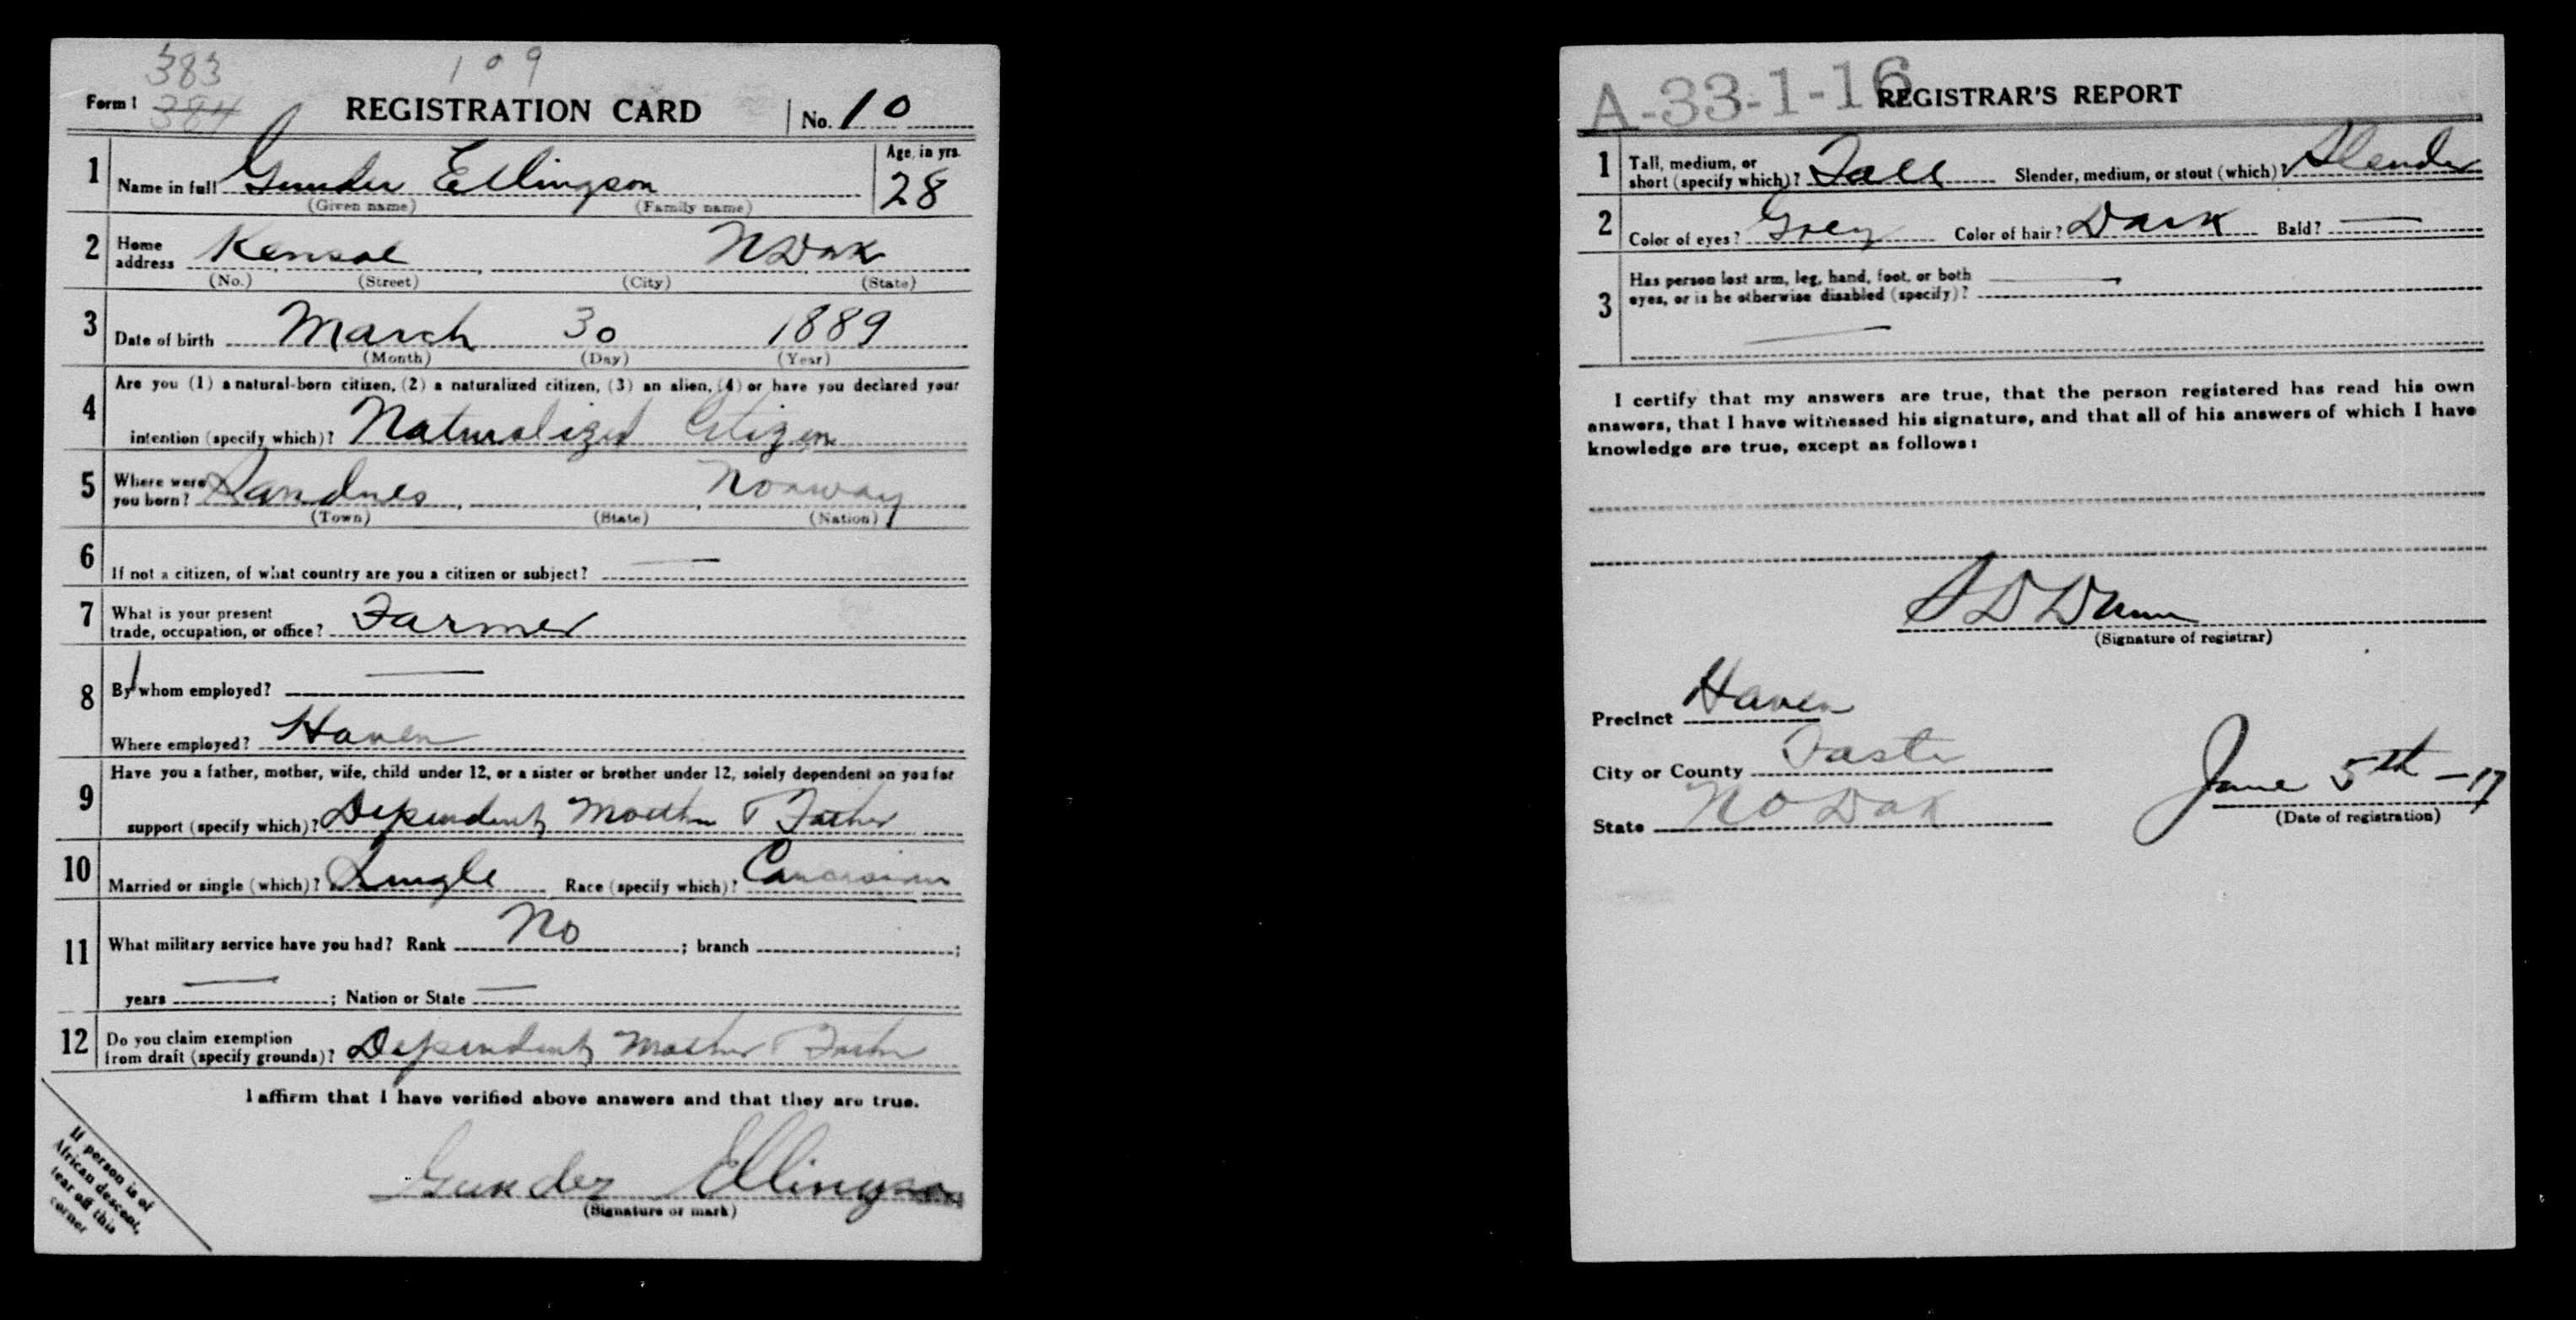 383
109
Form 1 384 REGISTRATION CARD No. 10
1 Name in full Gunder Ellingson Age, in yrs. 28
(Given name) (Family name)
2 Home address Kensal N Dak
(No.) (Street) (City) (State)
3 Date of birth March 30 1889
(Month) (Day) (Year)
4 Are you (1) a natural-born citizen, (2) a naturalized citizen, (3) an alien, (4) or have you declared your
intention (specify which)? Naturalized Citizen
5 Where were you born? Sandnes Norway
(Town) (State) (Nation)
6 If not a citizen, of what country are you a citizen or subject? —
7 What is your present
trade, occupation, or office? Farmer
8 By whom employed? —
Where employed? Haven
9 Have you a father, mother, wife, child under 12, or a sister or brother under 12, solely dependent on you for
support (specify which)? Dependent Mother & Father
10 Married or single (which)? Single Race (specify which)? Caucasian
11 What military service have you had? Rank No ; branch ;
years — ; Nation or State —
12 Do you claim exemption
from draft (specify grounds)? Dependent Mother Father
I affirm that I have verified above answers and that they are true.
Gunder Ellingson
(Signature or mark)
If person is of
African descent,
tear off this
corner
A-33-1-16 REGISTRAR'S REPORT
1 Tall, medium, or
short (specify which)? Tall Slender, medium, or stout (which)? Slender
2 Color of eyes? Grey Color of hair? Dark Bald? —
3 Has person lost arm, leg, hand, foot, or both —
eyes, or is he otherwise disabled (specify)?
—
I certify that my answers are true, that the person registered has read his own
answers, that I have witnessed his signature, and that all of his answers of which I have
knowledge are true, except as follows:
D Dunn
(Signature of registrar)
Precinct Haven
City or County Foster
State No Dak
June 5th - 17
(Date of registration)